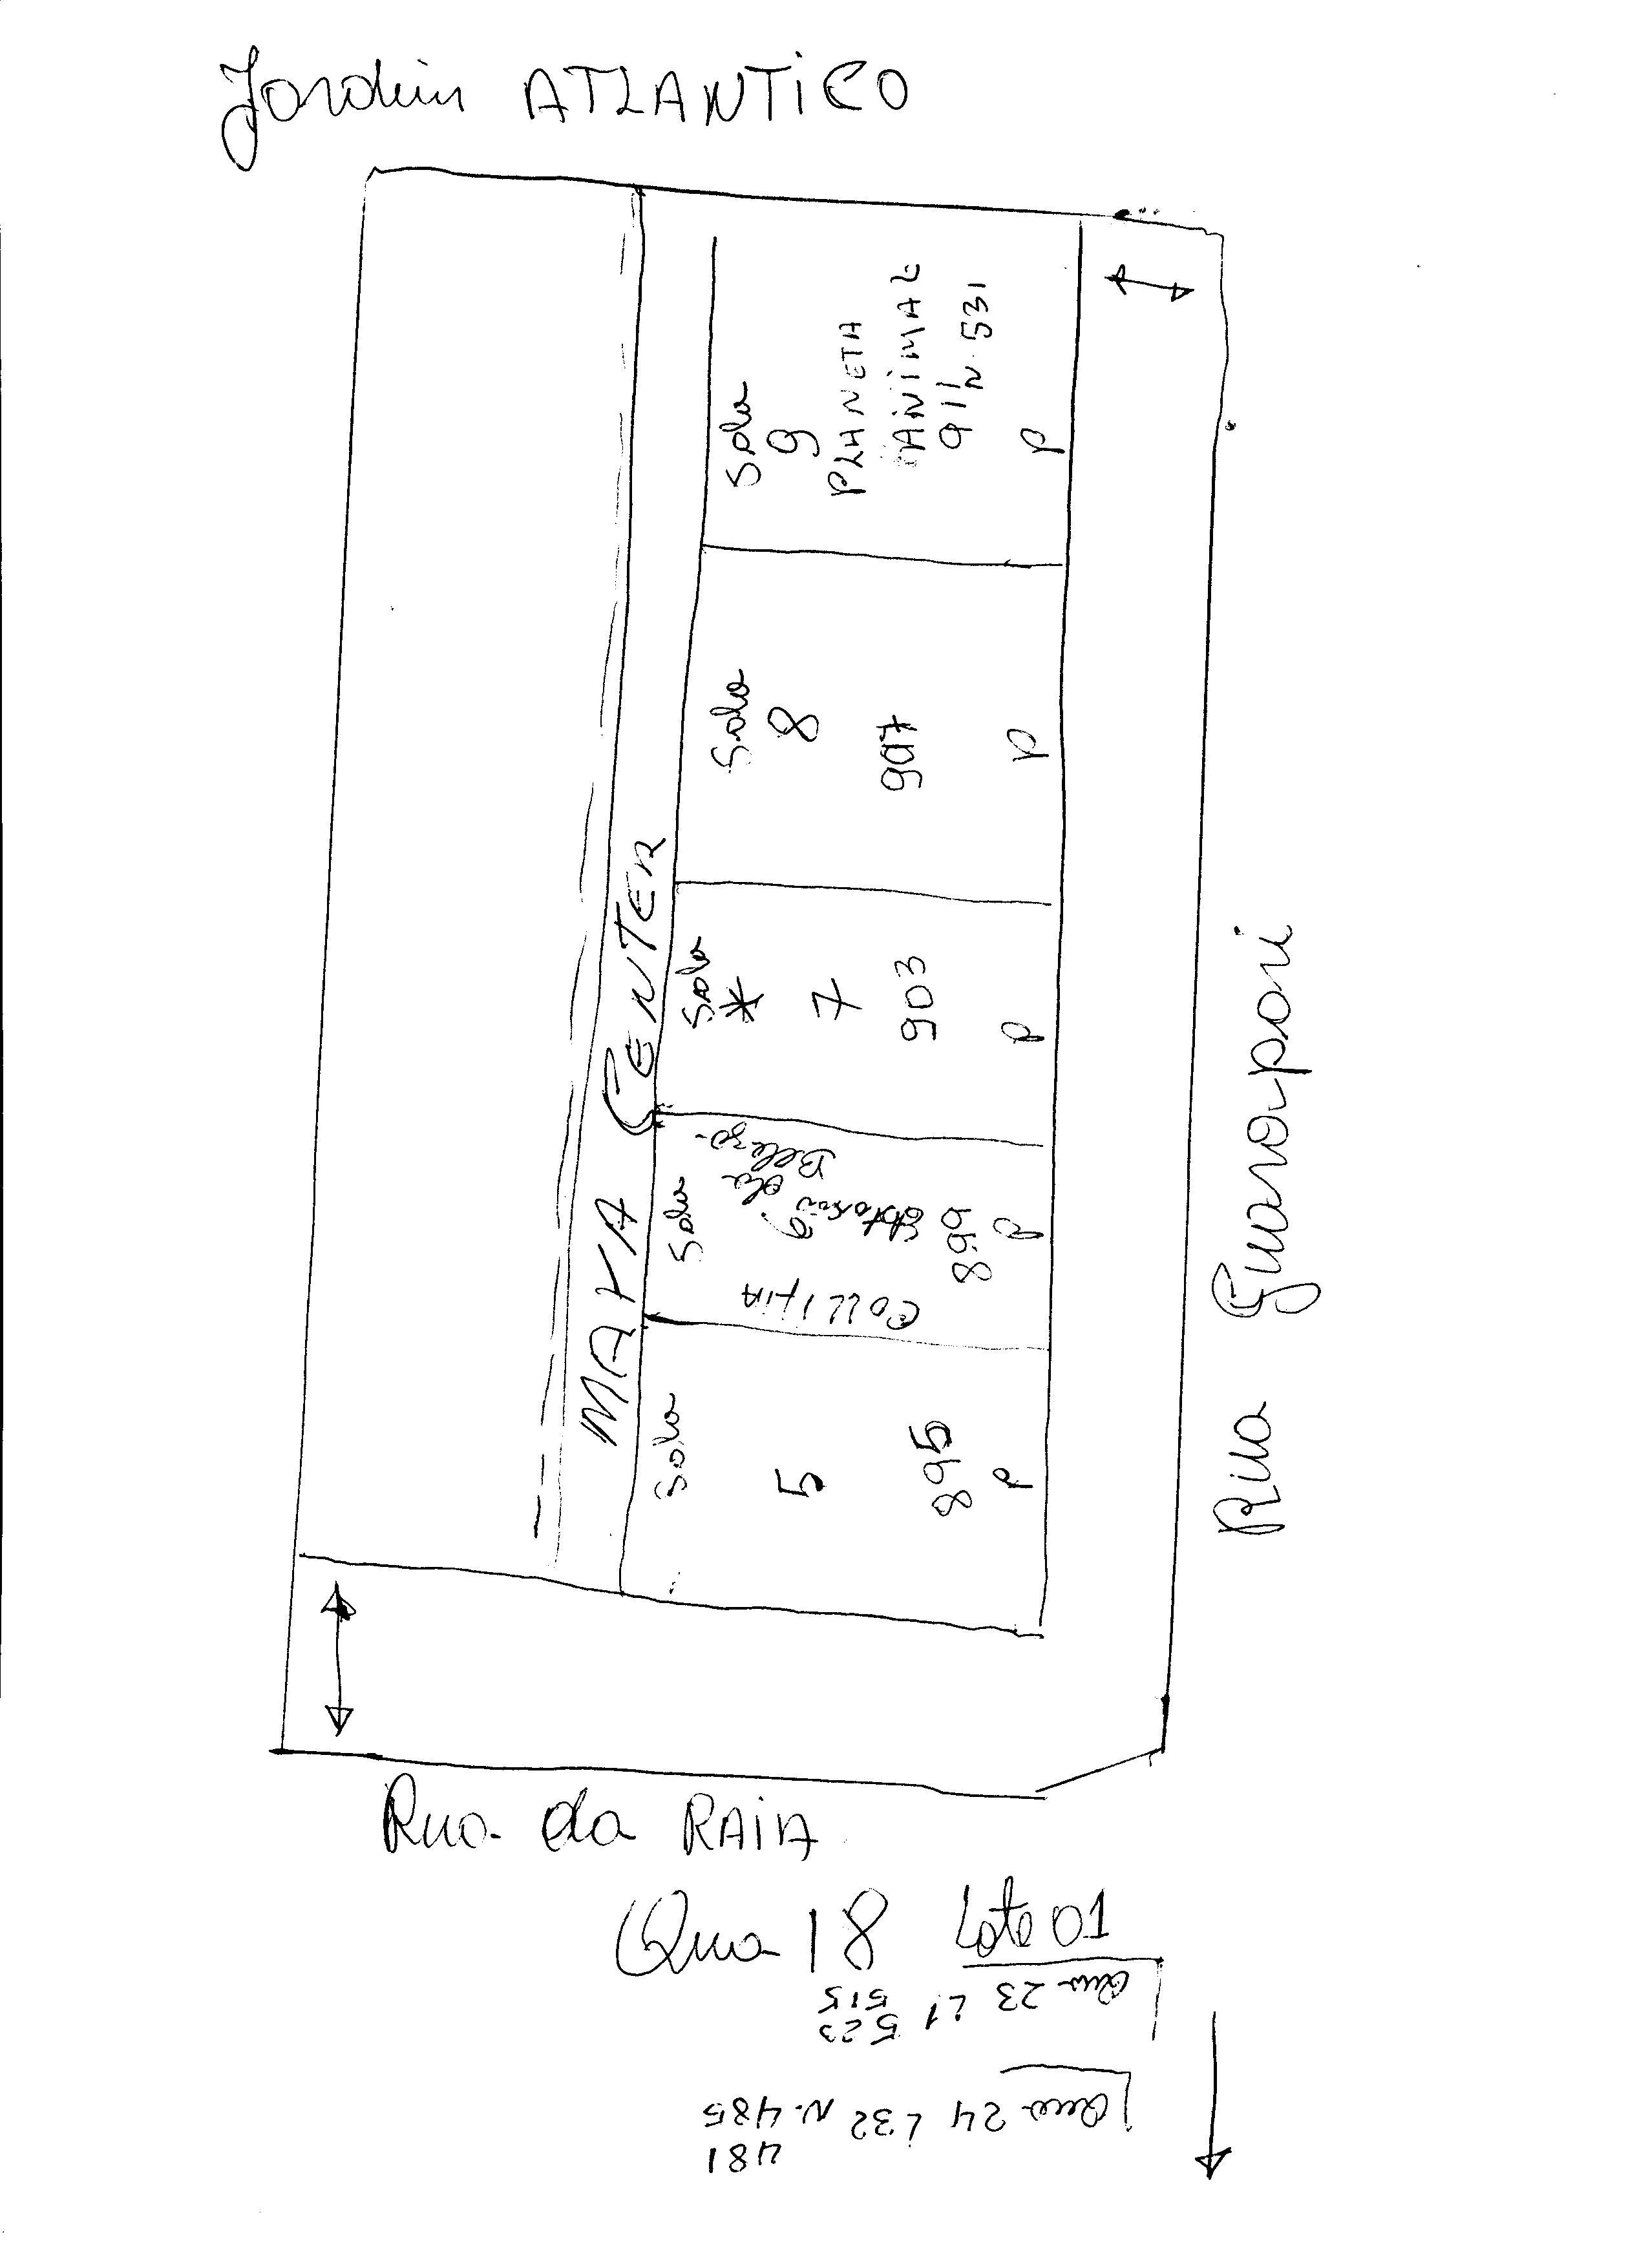 Jardim ATLANTICO
MAYA CENTER
Sala
9
PLANETA
ANIMAL
911
N. 531
P
Sala
8
907
P
Sala
*
7
903
P
Sala
6
da
Beleza
COLLIFIA
899
P
Sala
5
895
P
Rua Guarapari
Rua da RAIA
Qua 18 Lote 01
Qua 23 L1 523
515
Qua 24 L32 N. 485
481